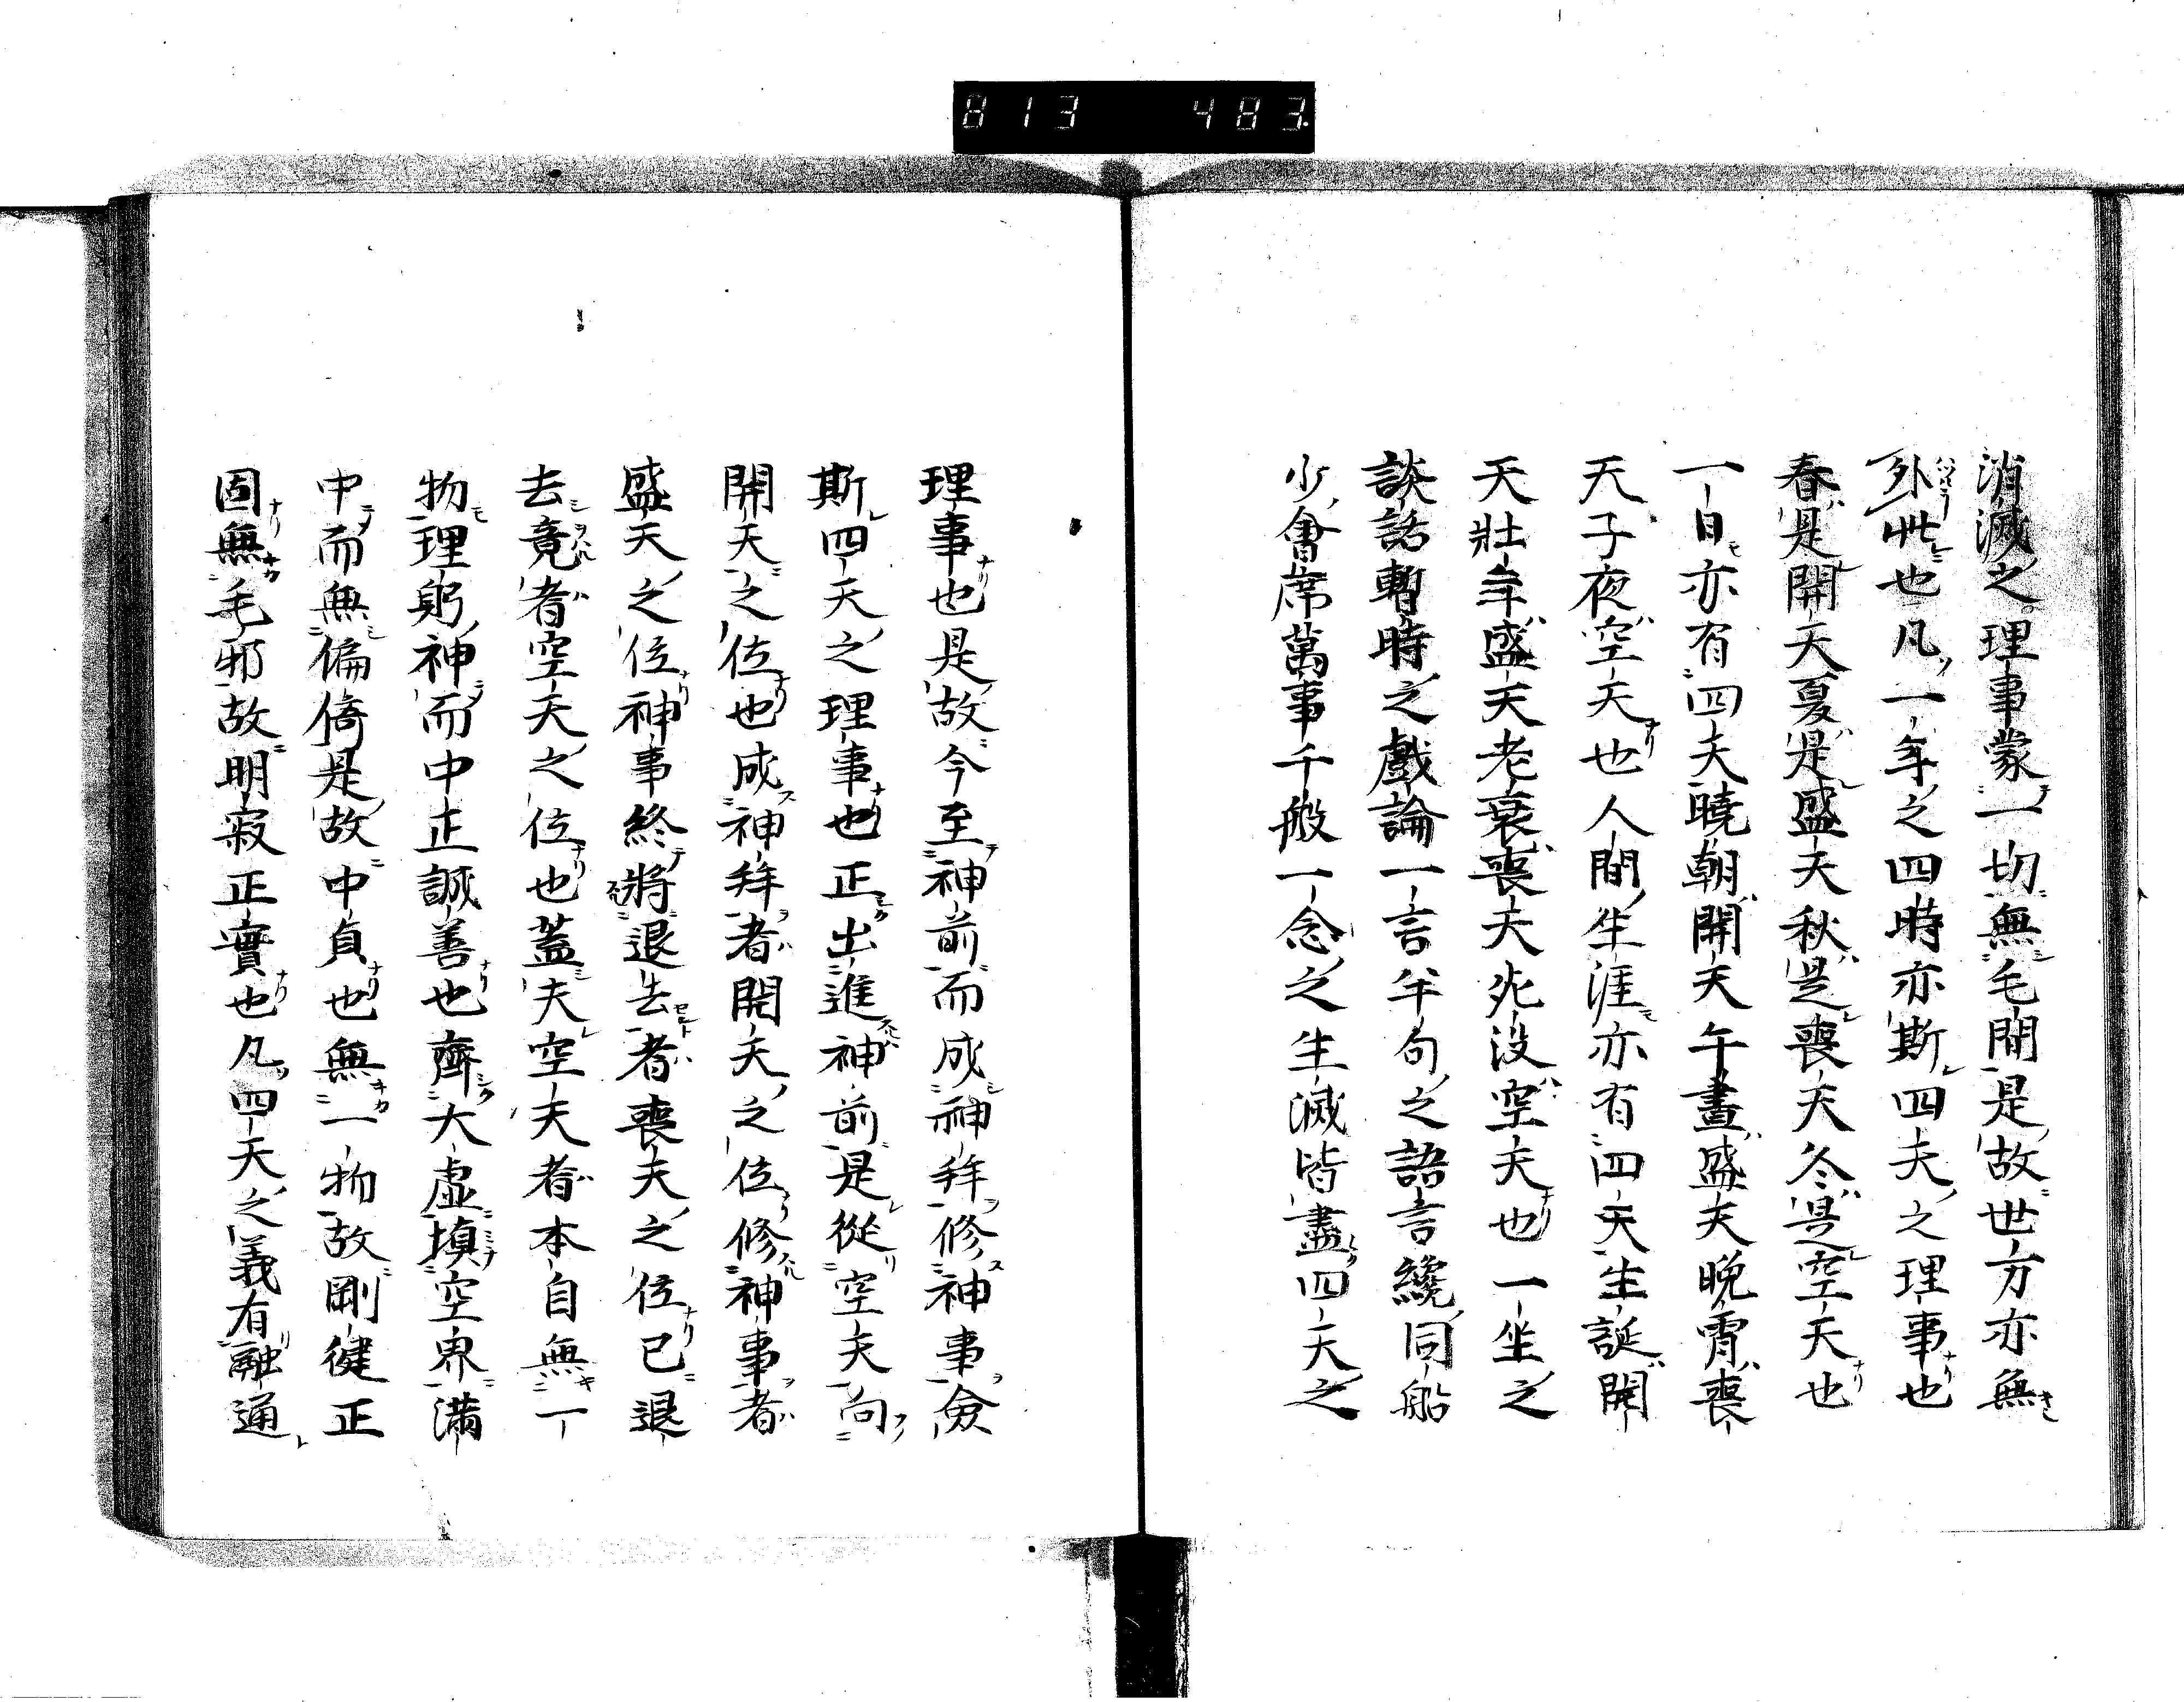 813 483.
消滅之理事蒙一切無毛間是故世方亦無
外此也凡一年之四時亦斯四天之理事也
春是開天夏是盛天秋是喪天冬是空天也
一日亦有四天曉朝開天午晝盛天晩霄喪
天子夜空天也人間生涯亦有四天生誕開
天壯年盛天老衰喪天死没空天也一坐之
談話暫時之戲論一言半句之語言纔同船
少會席萬事千般一念之生滅皆盡四天之
理事也是故今至神前而成神拜修神事僉
斯四天之理事也正出進神前是從空天向
開天之位也成神拜者開天之位修神事者
盛天之位神事終將退去者喪天之位已退
去竟者空天之位也蓋夫空天者本自無一
物理躬神而中正誠善也齊大虛塡空界滿
中而無偏倚是故中貞也無一物故剛健正
固無毛邪故明寂正實也凡四天之義有融通